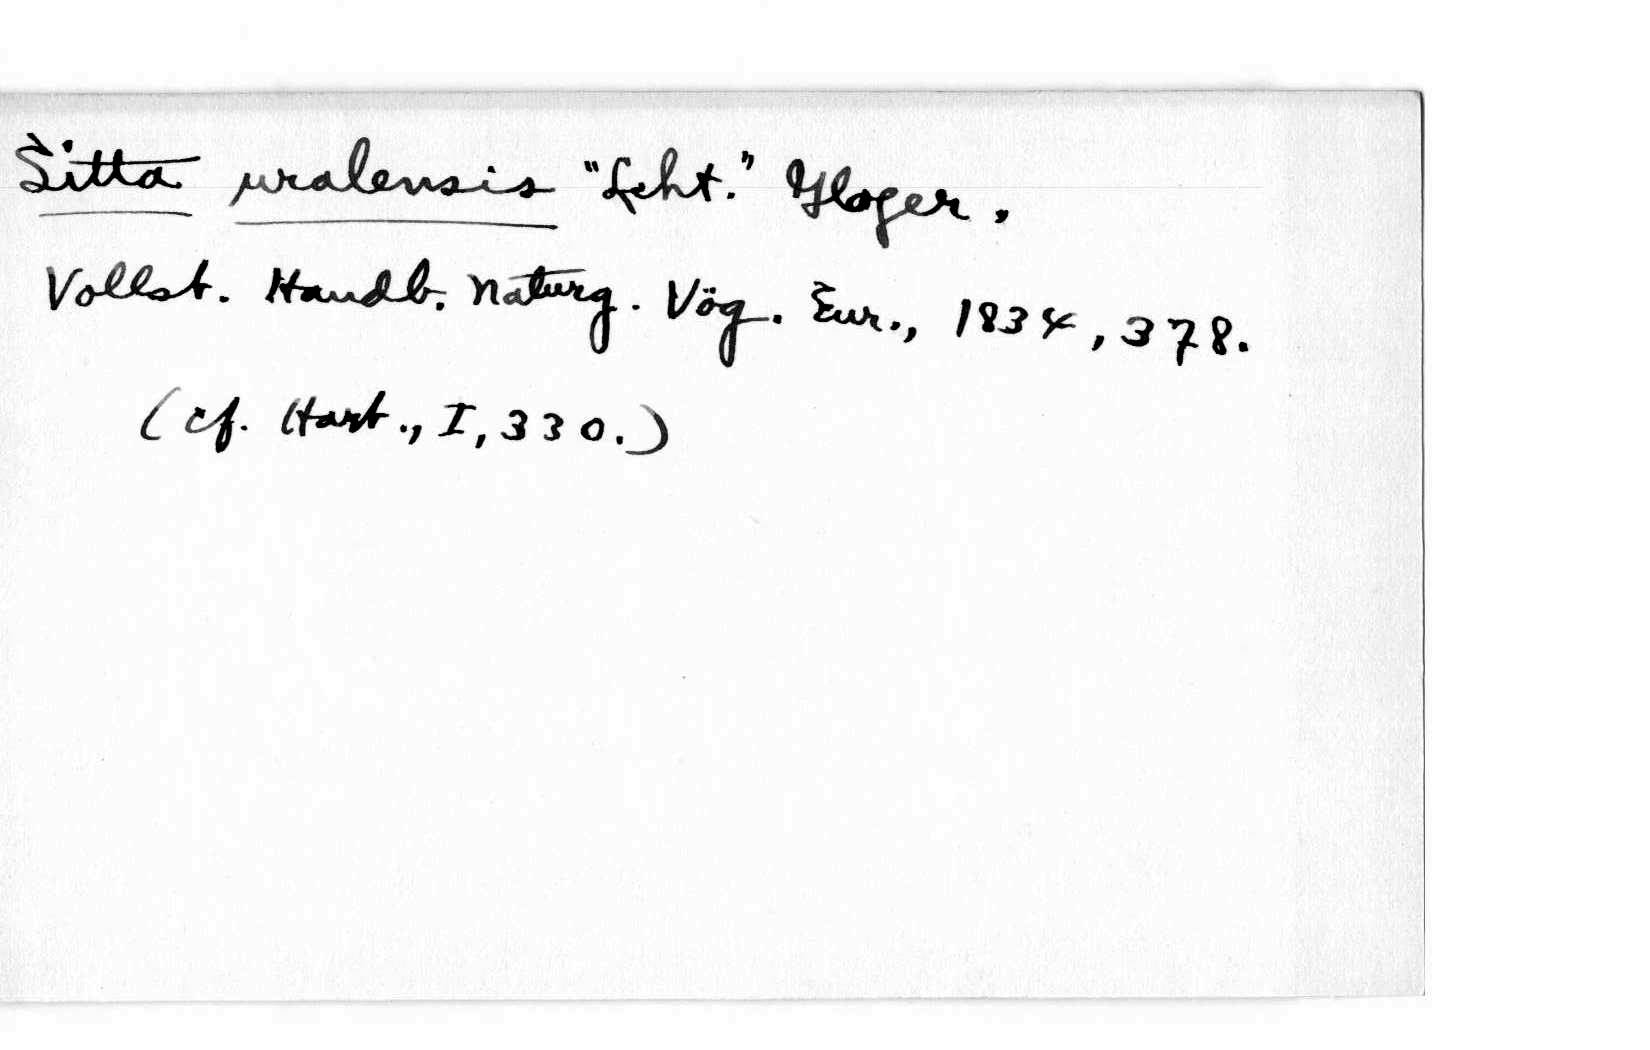 Sitta uralensis "Lcht." Gloger.
Vollst. Handb. Naturg. Vög. Eur., 1834, 378.
(cf. Hart., I, 330.)